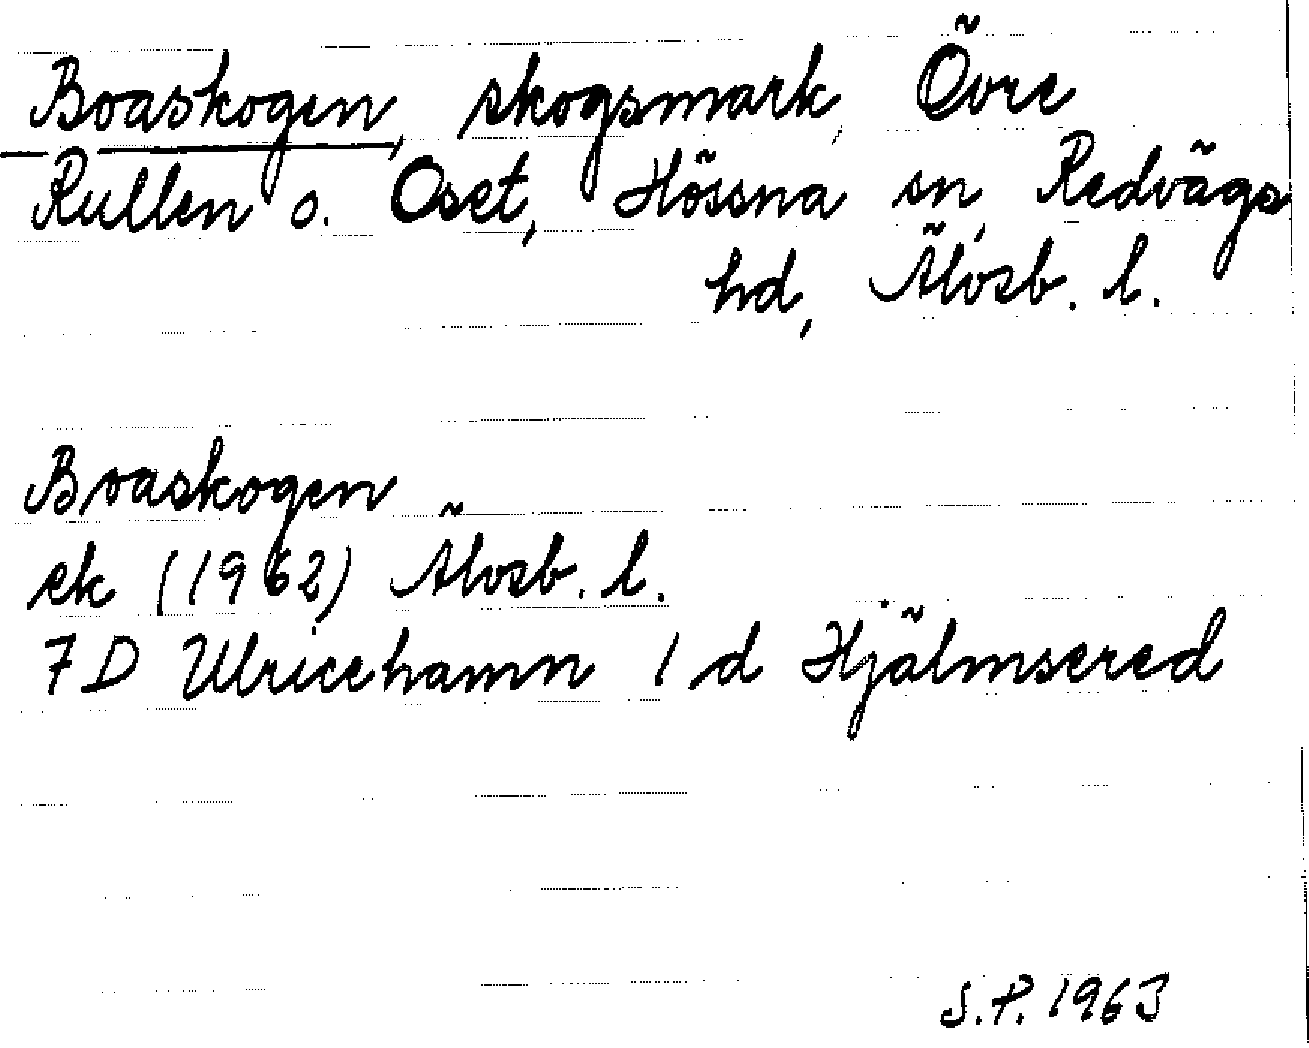 Boaskogen, skogsmark, Övre
Rullen o. Oset, Hössna sn, Redvägs
hd, Älvsb. l.
Boaskogen
ek (1962) Älvsb. l.
7D Ulricehamn 1 d Hjälmsered
S.P. 1963